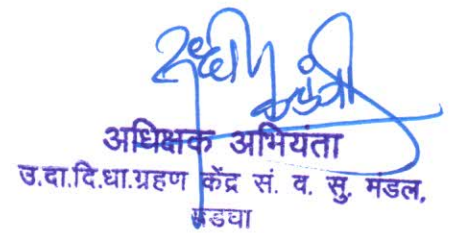 अधिक्षक अभियंता
उ.दा.दि.धा.ग्रहण केंद्र सं. व. सु. मंडल,
पडघा